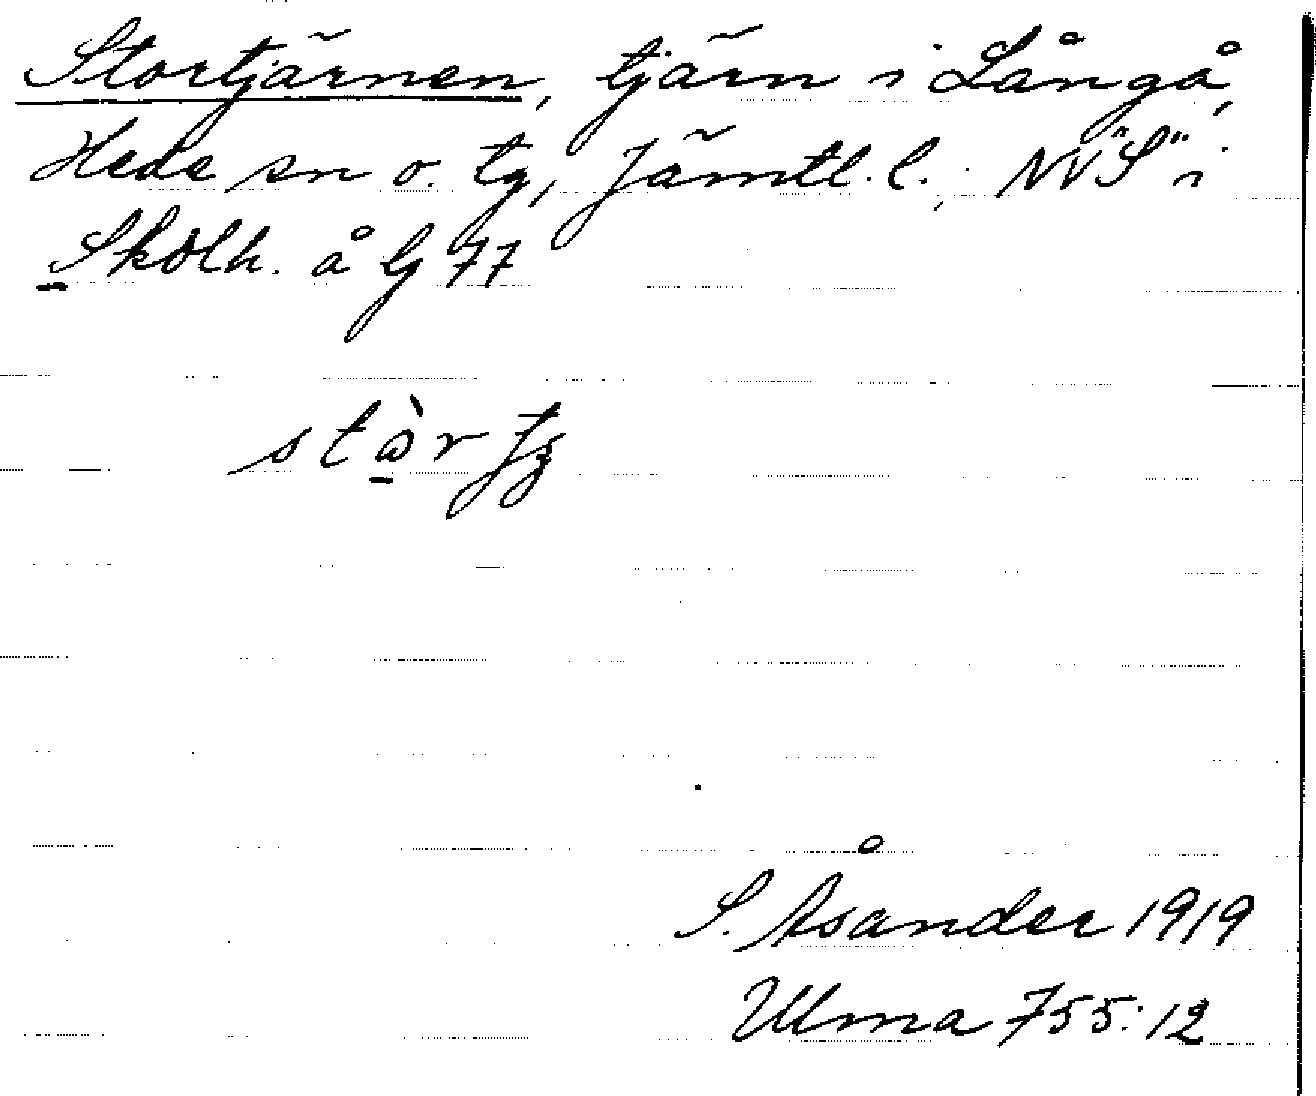 Stortjärnen, tjärn i Långå,
Hede sn o. tg, Jämtl. l. NV "S" i
Skolh. å G 77
stòr
S. Åsander 1919
Ulma 755:12